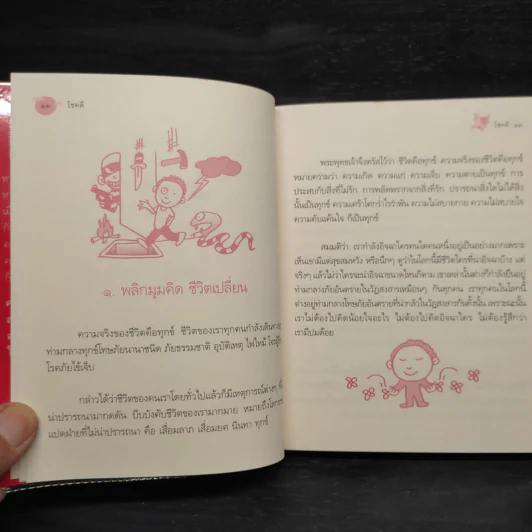 ๑๒
โชคดี
๑. พลิกมุมคิด ชีวิตเปลี่ยน
ความจริงของชีวิตคือทุกข์ ชีวิตของเราทุกคนกำลังเดินทาง
ท่ามกลางทุกข์โทษภัยนานาชนิด ภัยธรรมชาติ อุบัติเหตุ ไฟไหม้
โรคภัยไข้เจ็บ
กล่าวได้ว่าชีวิตของคนเราโดยทั่วไปแล้วก็มีเหตุการณ์ต่างๆ
น่าปรารถนามากดดัน บีบบังคับชีวิตของเรามากมาย หมายถึงโลกธรรม
แปดฝ่ายที่ไม่น่าปรารถนา คือ เสื่อมลาภ เสื่อมยศ นินทา ทุกข์
โชคดี ๑๓
พระพุทธเจ้าจึงตรัสไว้ว่า ชีวิตคือทุกข์ ความจริงของชีวิตคือทุกข์
หมายความว่า ความเกิด ความแก่ ความเจ็บ ความตายเป็นทุกข์ การ
ประสบกับสิ่งที่ไม่รัก การพลัดพรากจากสิ่งที่รัก ปรารถนาสิ่งใดไม่ได้สิ่ง
นั้นเป็นทุกข์ ความเศร้าโศกร่ำไรรำพัน ความไม่สบายกาย ความไม่สบายใจ
ความคับแค้นใจ ก็เป็นทุกข์
สมมติว่า เรากำลังอิจฉาใครคนใดคนหนึ่งอยู่เป็นอย่างมากเพราะ
เห็นเขามีแต่สุขสมหวัง หรือนึกๆ ดูว่าในโลกนี้มีชีวิตใครที่น่าอิจฉาบ้าง แต่
จริงๆ แล้วไม่ว่าใครจะน่าอิจฉาขนาดไหนก็ตาม เขาเหล่านั้นต่างก็กำลังเป็นอยู่
ท่ามกลางภัยอันตรายในวัฏสงสารเหมือนๆ กันทุกคน เราทุกคนในโลกนี้
ต่างอยู่ท่ามกลางโทษภัยอันตรายที่น่ากลัวในวัฏสงสารกันทั้งนั้น เพราะฉะนั้น
เราไม่ต้องไปคิดน้อยใจอะไร ไม่ต้องไปคิดอิจฉาใคร ไม่ต้องรู้สึกว่า
เรามีปมด้อย